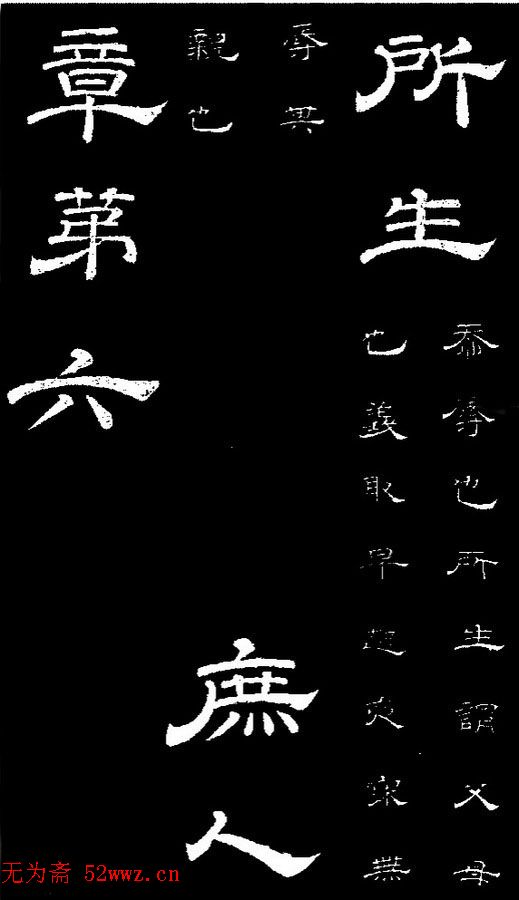 所生
忝辱也所生謂父母
也義取早起夜寐無
辱其
親也
庶人
章第六
无为斋 52wwz.cn